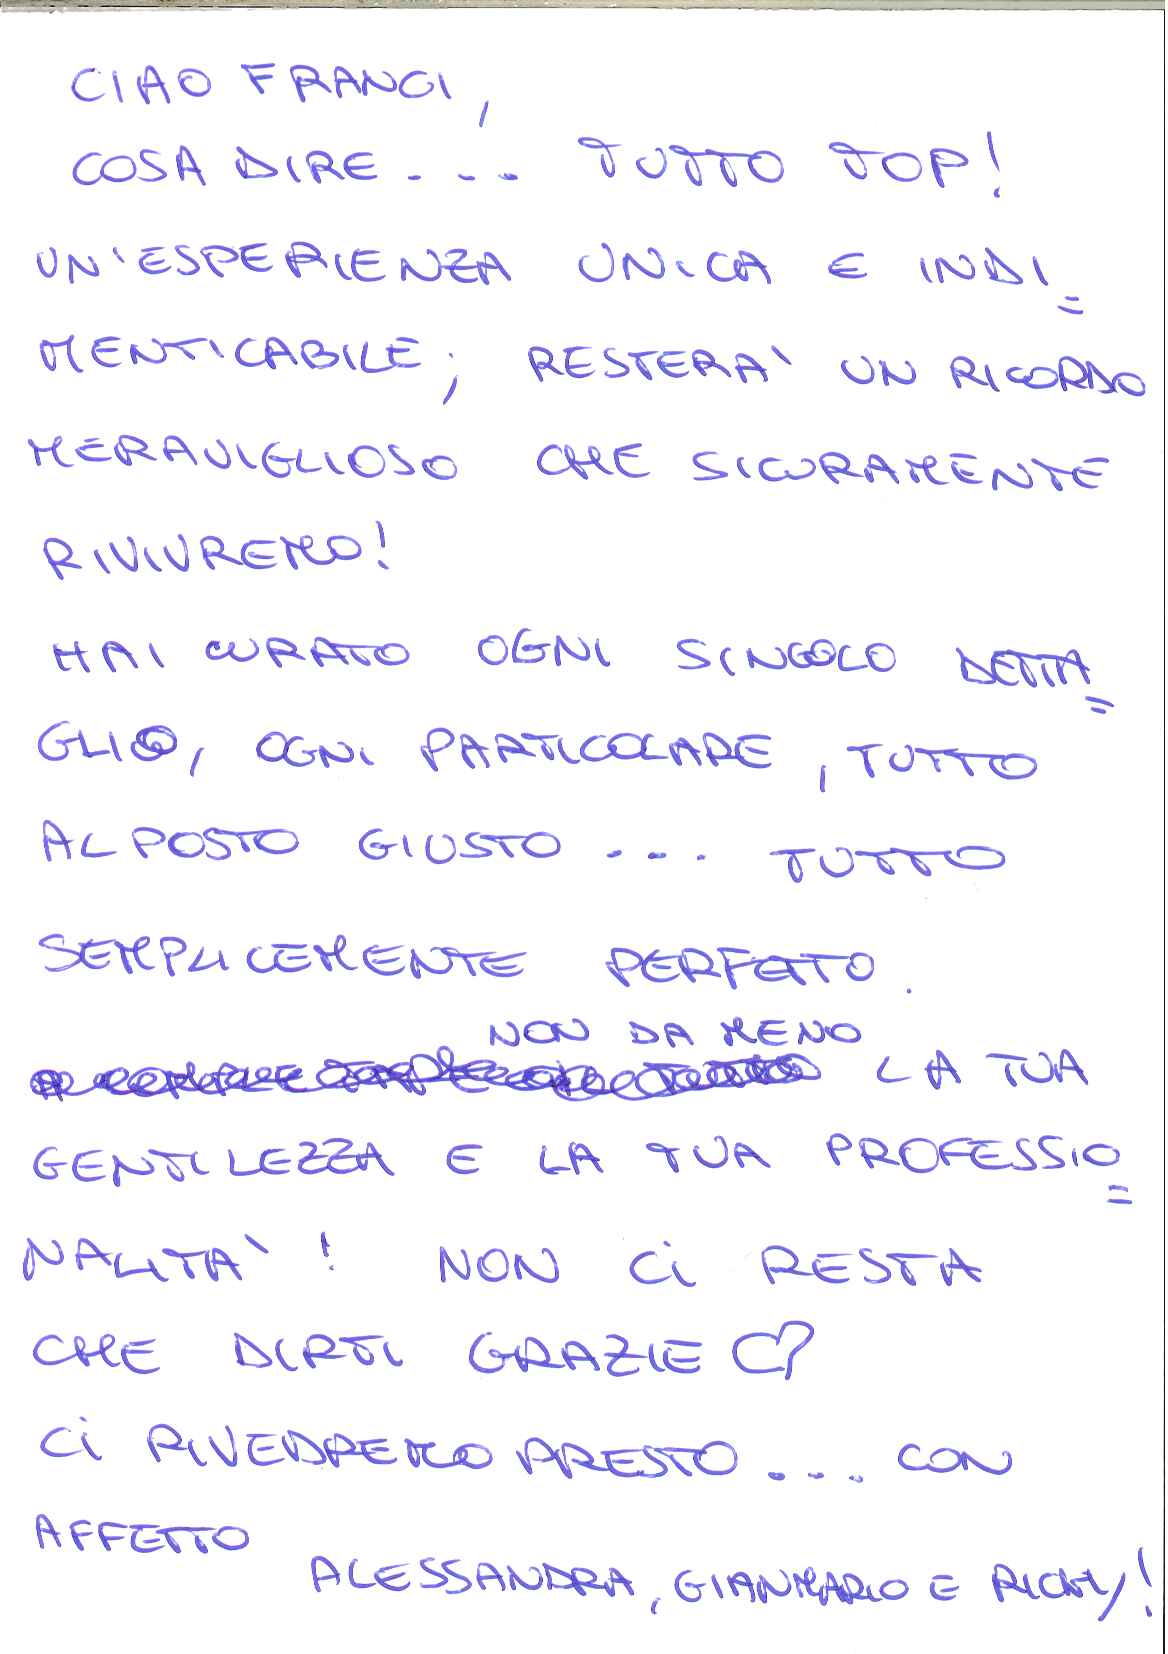 CIAO FRANCI,
COSA DIRE... TUTTO TOP!
UN'ESPERIENZA UNICA E INDI=
MENTICABILE; RESTERA' UN RICORDO
MERAVIGLIOSO CHE SICURAMENTE
RIVIVREMO!
HAI CURATO OGNI SINGOLO DETTA=
GLIO, OGNI PARTICOLARE, TUTTO
AL POSTO GIUSTO... TUTTO
SEMPLICEMENTE PERFETTO.
NON DA MENO
LA TUA
GENTILEZZA E LA TUA PROFESSIO=
NALITA'! NON Ci RESTA
CHE DIRTI GRAZIE
Ci RIVEDREMO PRESTO... CON
AFFETTO
ALESSANDRA, GIANMARIO E RICKY!